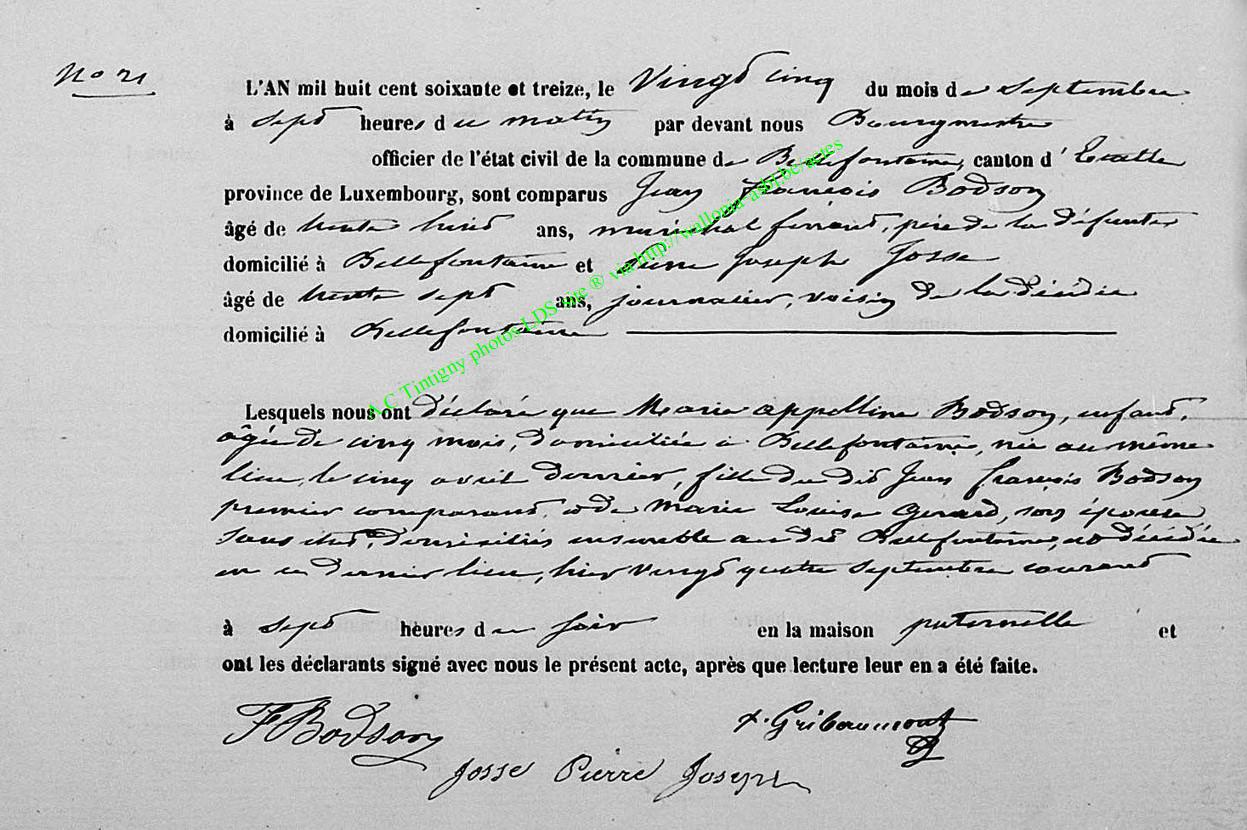 No 21
L'AN mil huit cent soixante et treize, le Vingt cinq du mois de Septembre
à Sept heures du matin par devant nous Bourgmestre
officier de l'état civil de la commune de Bellefontaine, canton d'Etalle
province de Luxembourg, sont comparus Jean François Bodson
âgé de trente huit ans, maréchal ferrant, père de la défunte
domicilié à Bellefontaine et Pierre Joseph Josse
âgé de trente sept ans, journalier, voisin de la décédée
domicilié à Bellefontaine
Lesquels nous ont déclaré que Marie appolline Bodson, enfant,
âgée de cinq mois, domiciliée à Bellefontaine, née au même
lieu, le cinq avril dernier, fille du dit Jean françois Bodson
premier comparant, et de Marie Louise Gerard, son épouse
sans état, domiciliés ensemble au dit Bellefontaine, est décédée
en ce dernier lieu, hier vingt quatre Septembre courant
à Sept heures du soir en la maison paternelle et
ont les déclarants signé avec nous le présent acte, après que lecture leur en a été faite.
FBodson
Gribaumont
Josse Pierre Joseph
A.C Tintigny photos LDS site ® via http://wallonia-asbl.be/actes